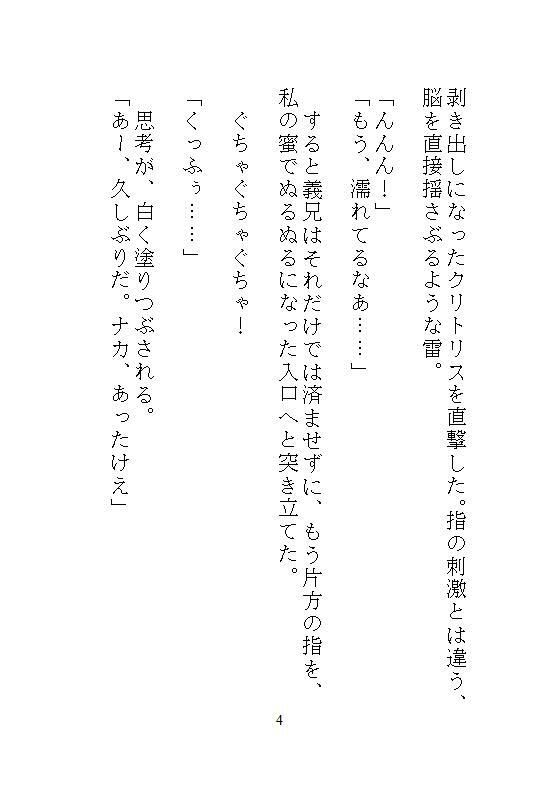 剥き出しになったクリトリスを直撃した。指の刺激とは違う、
脳を直接揺さぶるような雷。
「んんん！」
「もう、濡れてるなあ……」
すると義兄はそれだけでは済ませずに、もう片方の指を、
私の蜜でぬるぬるになった入口へと突き立てた。
ぐちゃぐちゃぐちゃ！
「くっふぅ……」
思考が、白く塗りつぶされる。
「あー、久しぶりだ。ナカ、あったけえ」
4